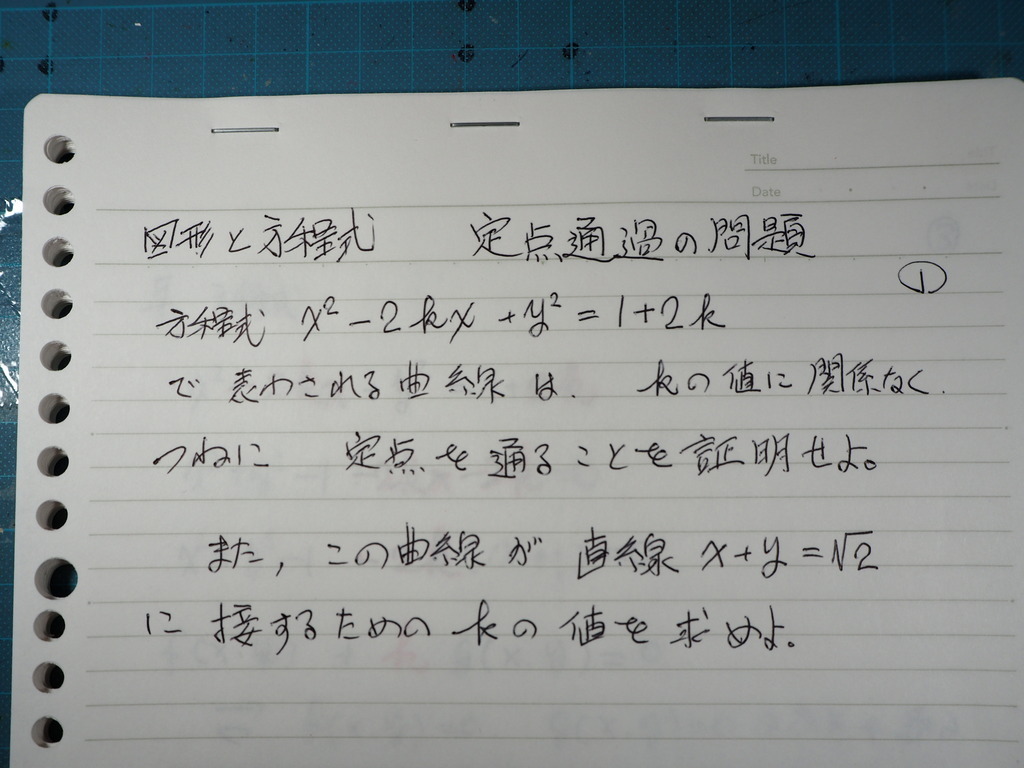 Title
Date
図形と方程式 定点通過の問題
①
方程式 x² - 2kx + y² = 1 + 2k
で表わされる曲線は、 kの値に関係なく、
つねに 定点を通ることを証明せよ。
また, この曲線が 直線 x + y = √2
に接するための kの値を求めよ。